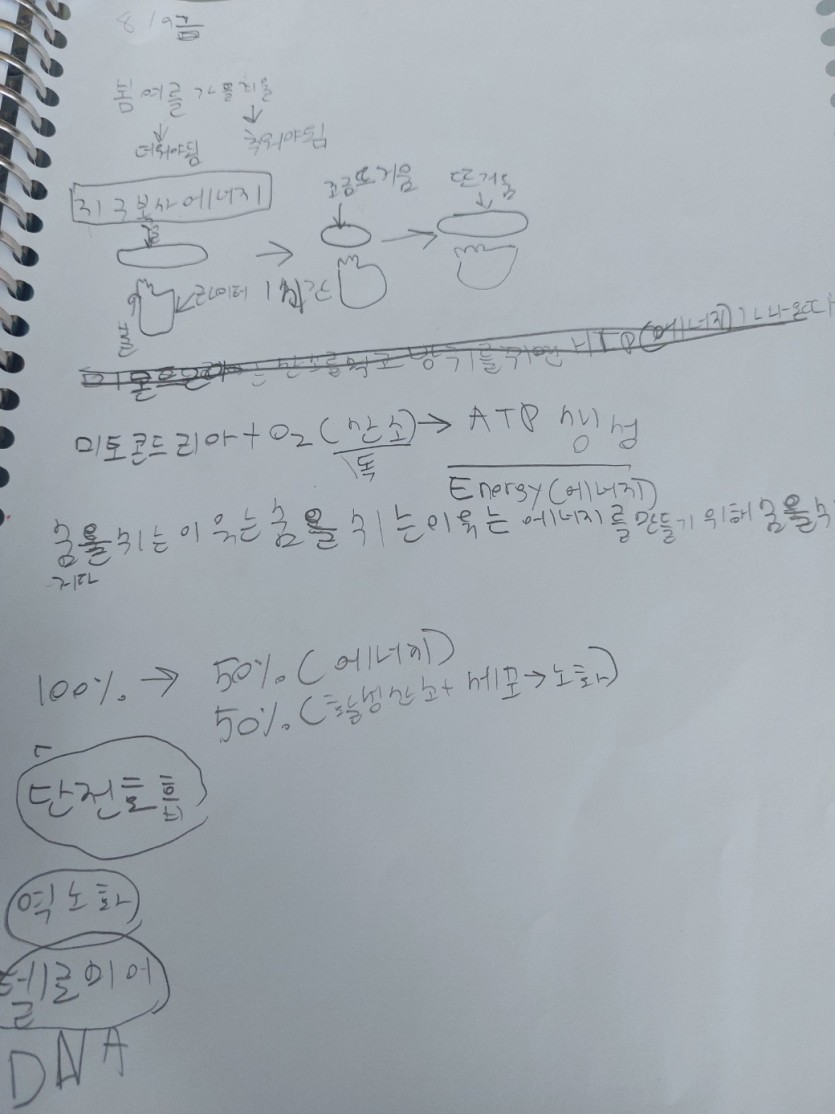 8/9금
봄 여름 가을 겨울
더워야됨 추워야됨
지구복사에너지
조금뜨거움 뜨거움
라이터 1시간
불
산소를 먹고 ATP(에너지)가 나온다
미토콘드리아+O2(산소)→ATP 생성
독
Energy(에너지)
숨을 쉬는 이유는 숨을 쉬는 이유는 에너지를 만들기 위해 숨을 쉬
거다
100% → 50%(에너지)
50%(활성산소+세포→노화)
단전호흡
역노화
텔로미어
DNA